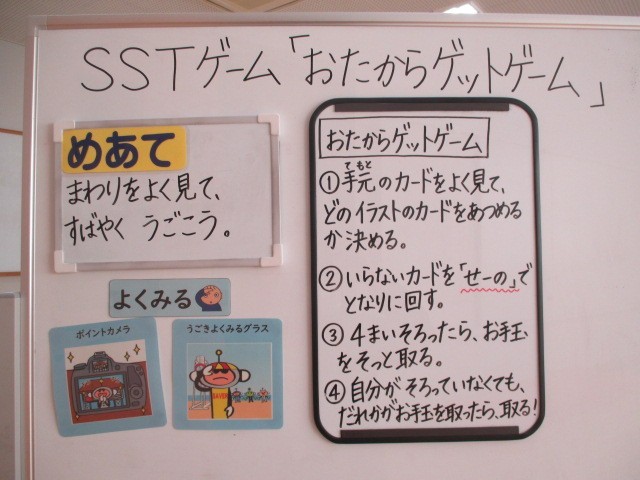 SSTゲーム「おたからゲットゲーム」
めあて
まわりをよく見て、
すばやく うごこう。
よくみる
ポイントカメラ
うごきよくみるグラス
おたからゲットゲーム
①手元のカードをよく見て、
てもと
どのイラストのカードをあつめる
か決める。
②いらないカードを「せーの」で
となりに回す。
③4まいそろったら、お手玉
をそっと取る。
④自分がそろっていなくても、
だれかがお手玉を取ったら、取る!